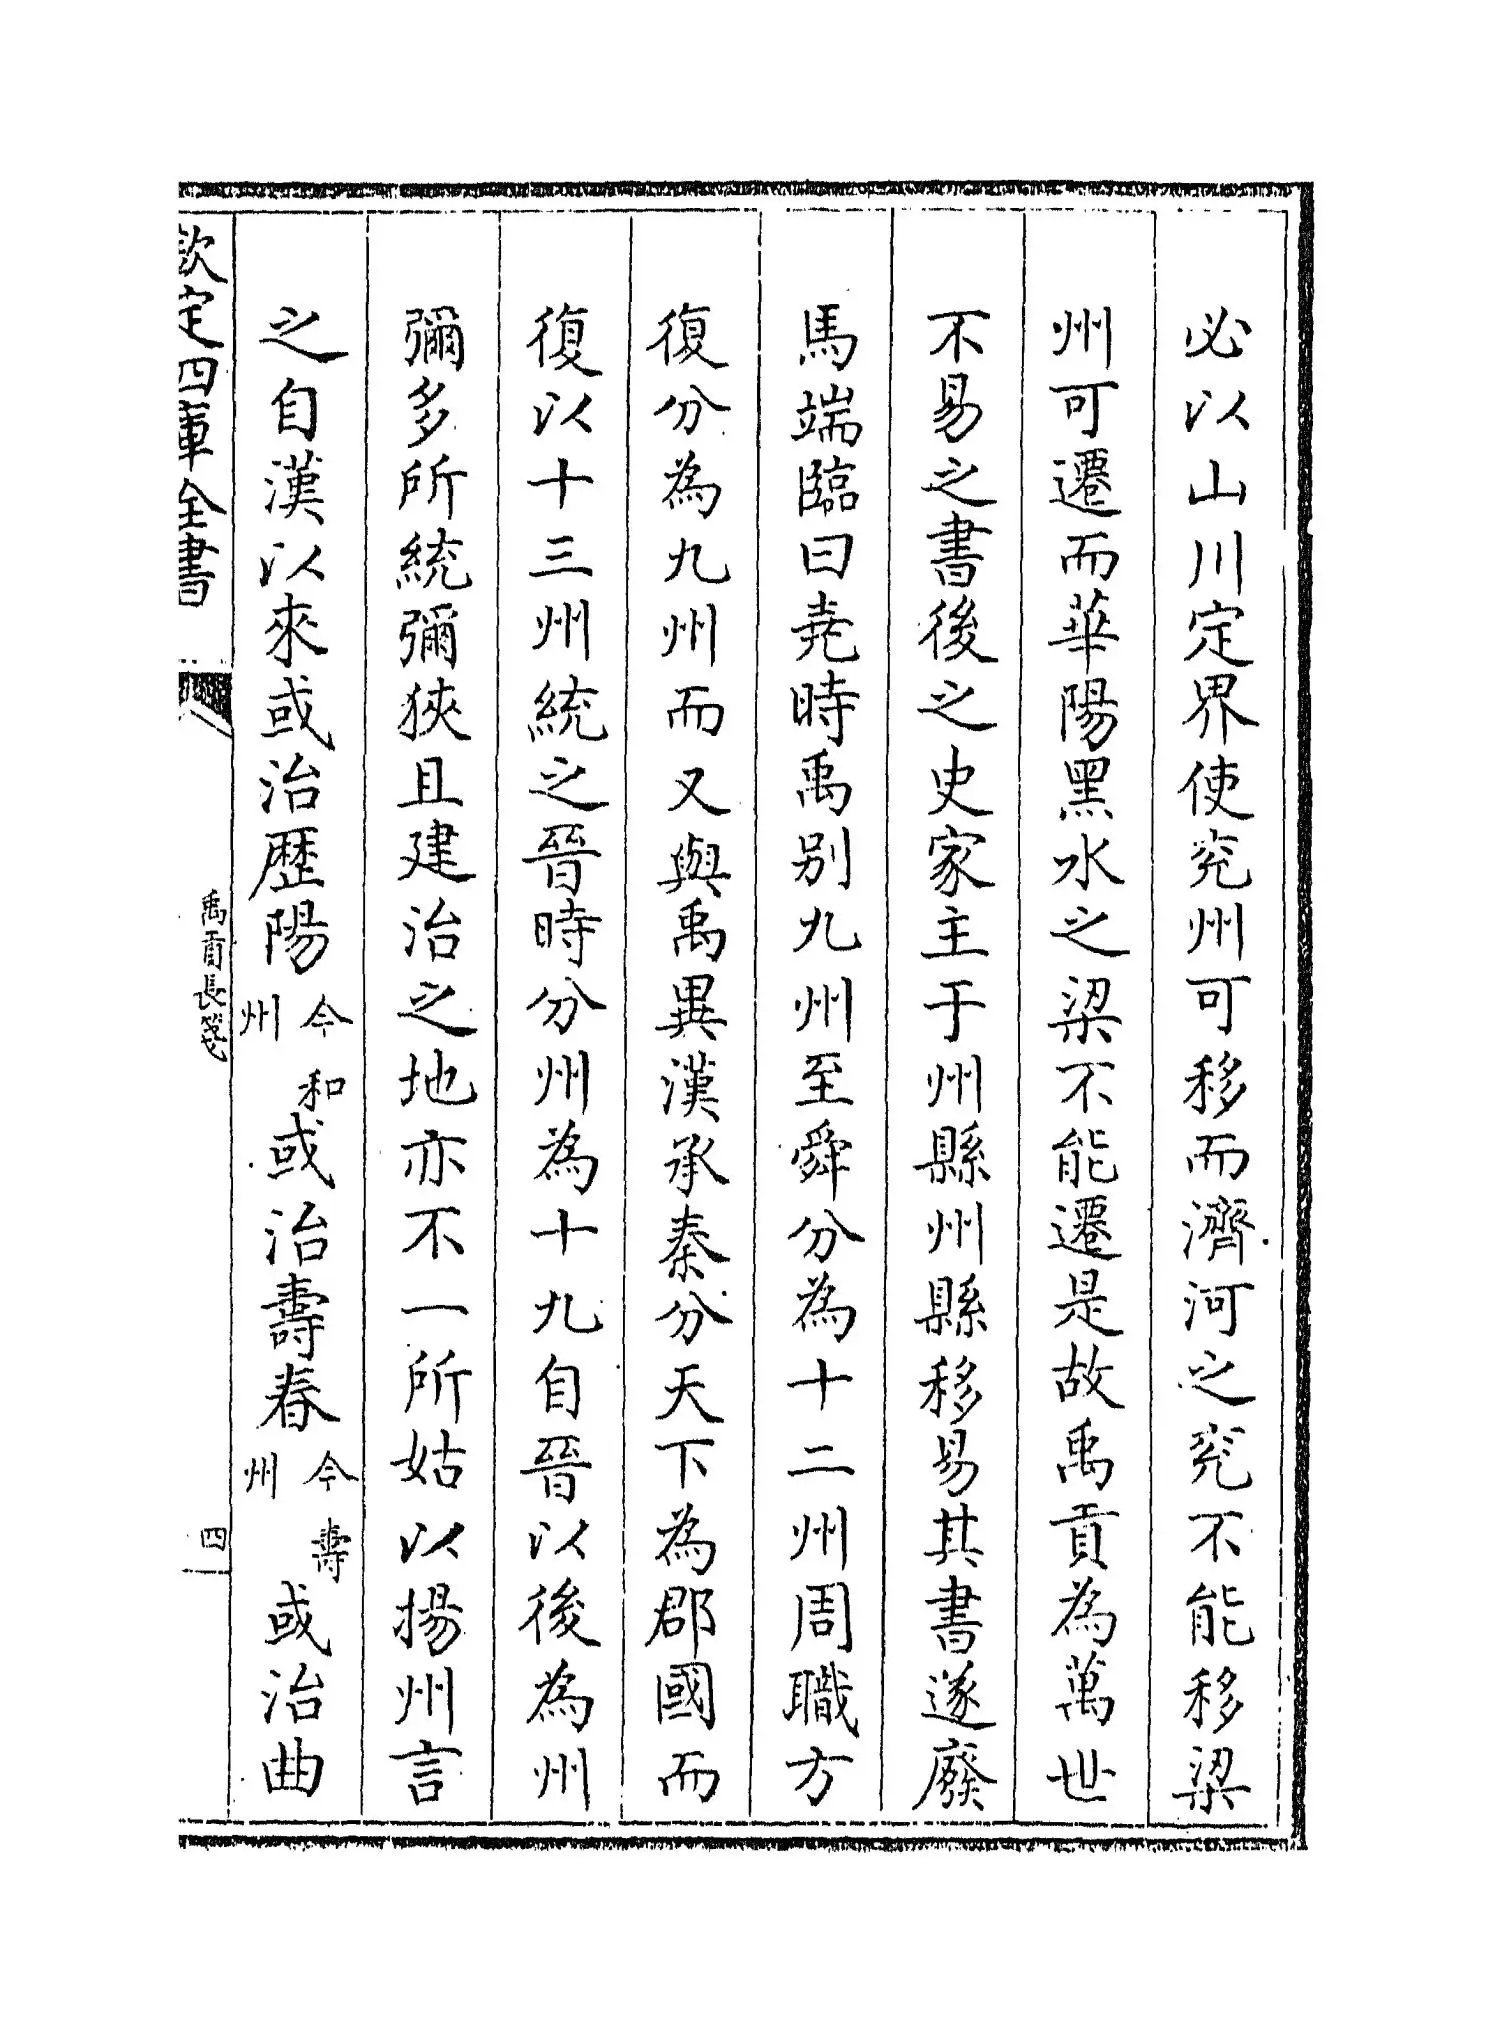 必以山川定界使兖州可移而濟河之兖不能移梁
州可遷而華陽黑水之梁不能遷是故禹貢為萬世
不易之書後之史家主于州縣州縣移易其書遂廢
馬端臨曰堯時禹别九州至舜分為十二州周職方
復分為九州而又與禹異漢承秦分天下為郡國而
復以十三州統之晉時分州為十九自晉以後為州
彌多所統彌狹且建治之地亦不一所姑以揚州言
之自漢以來或治歴陽今和州或治壽春今壽州或治曲
欽定四庫全書
禹貢長箋
四